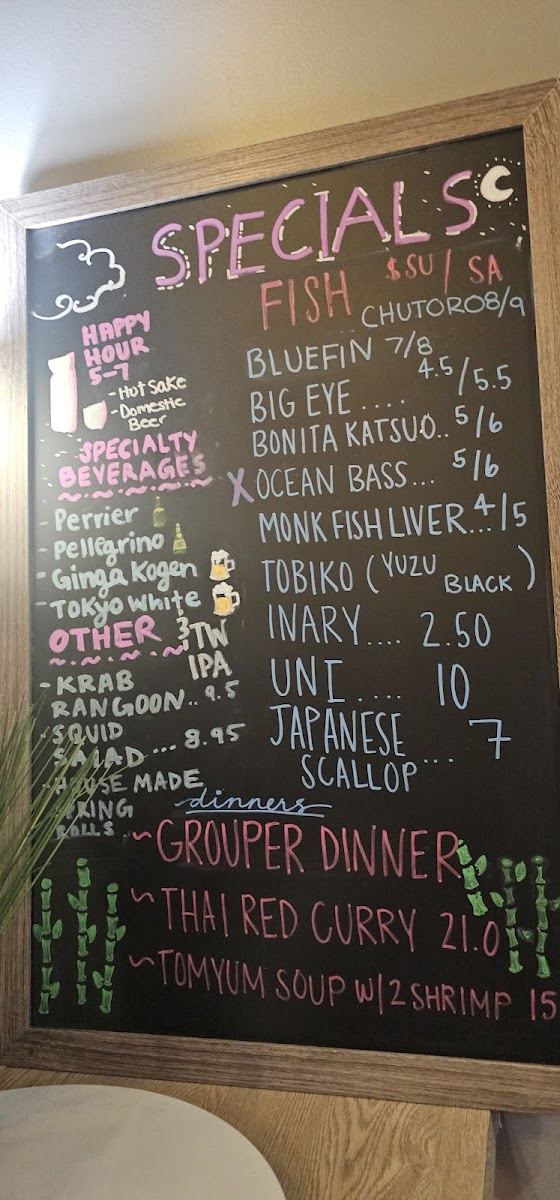 SPECIALS
FISH $SU / SA
CHUTORO 8/9
BLUEFIN 7/8
BIG EYE .... 4.5/5.5
BONITA KATSUO.. 5/6
X OCEAN BASS... 5/6
MONK FISH LIVER... 4/5
TOBIKO (YUZU BLACK)
INARY.... 2.50
UNI .... 10
JAPANESE
SCALLOP ... 7
HAPPY
HOUR
5-7
- Hot Sake
- Domestic
Beer
SPECIALTY
BEVERAGES
- Perrier
- Pellegrino
- Ginga Kogen
- Tokyo White
3TW
IPA
OTHER
- KRAB
RANGOON.. 9.5
- SQUID
SALAD ... 8.95
- HOUSE MADE
SPRING
ROLLS ..
dinners
~ GROUPER DINNER
~ THAI RED CURRY 21.0
~ TOMYUM SOUP W/2 SHRIMP 15